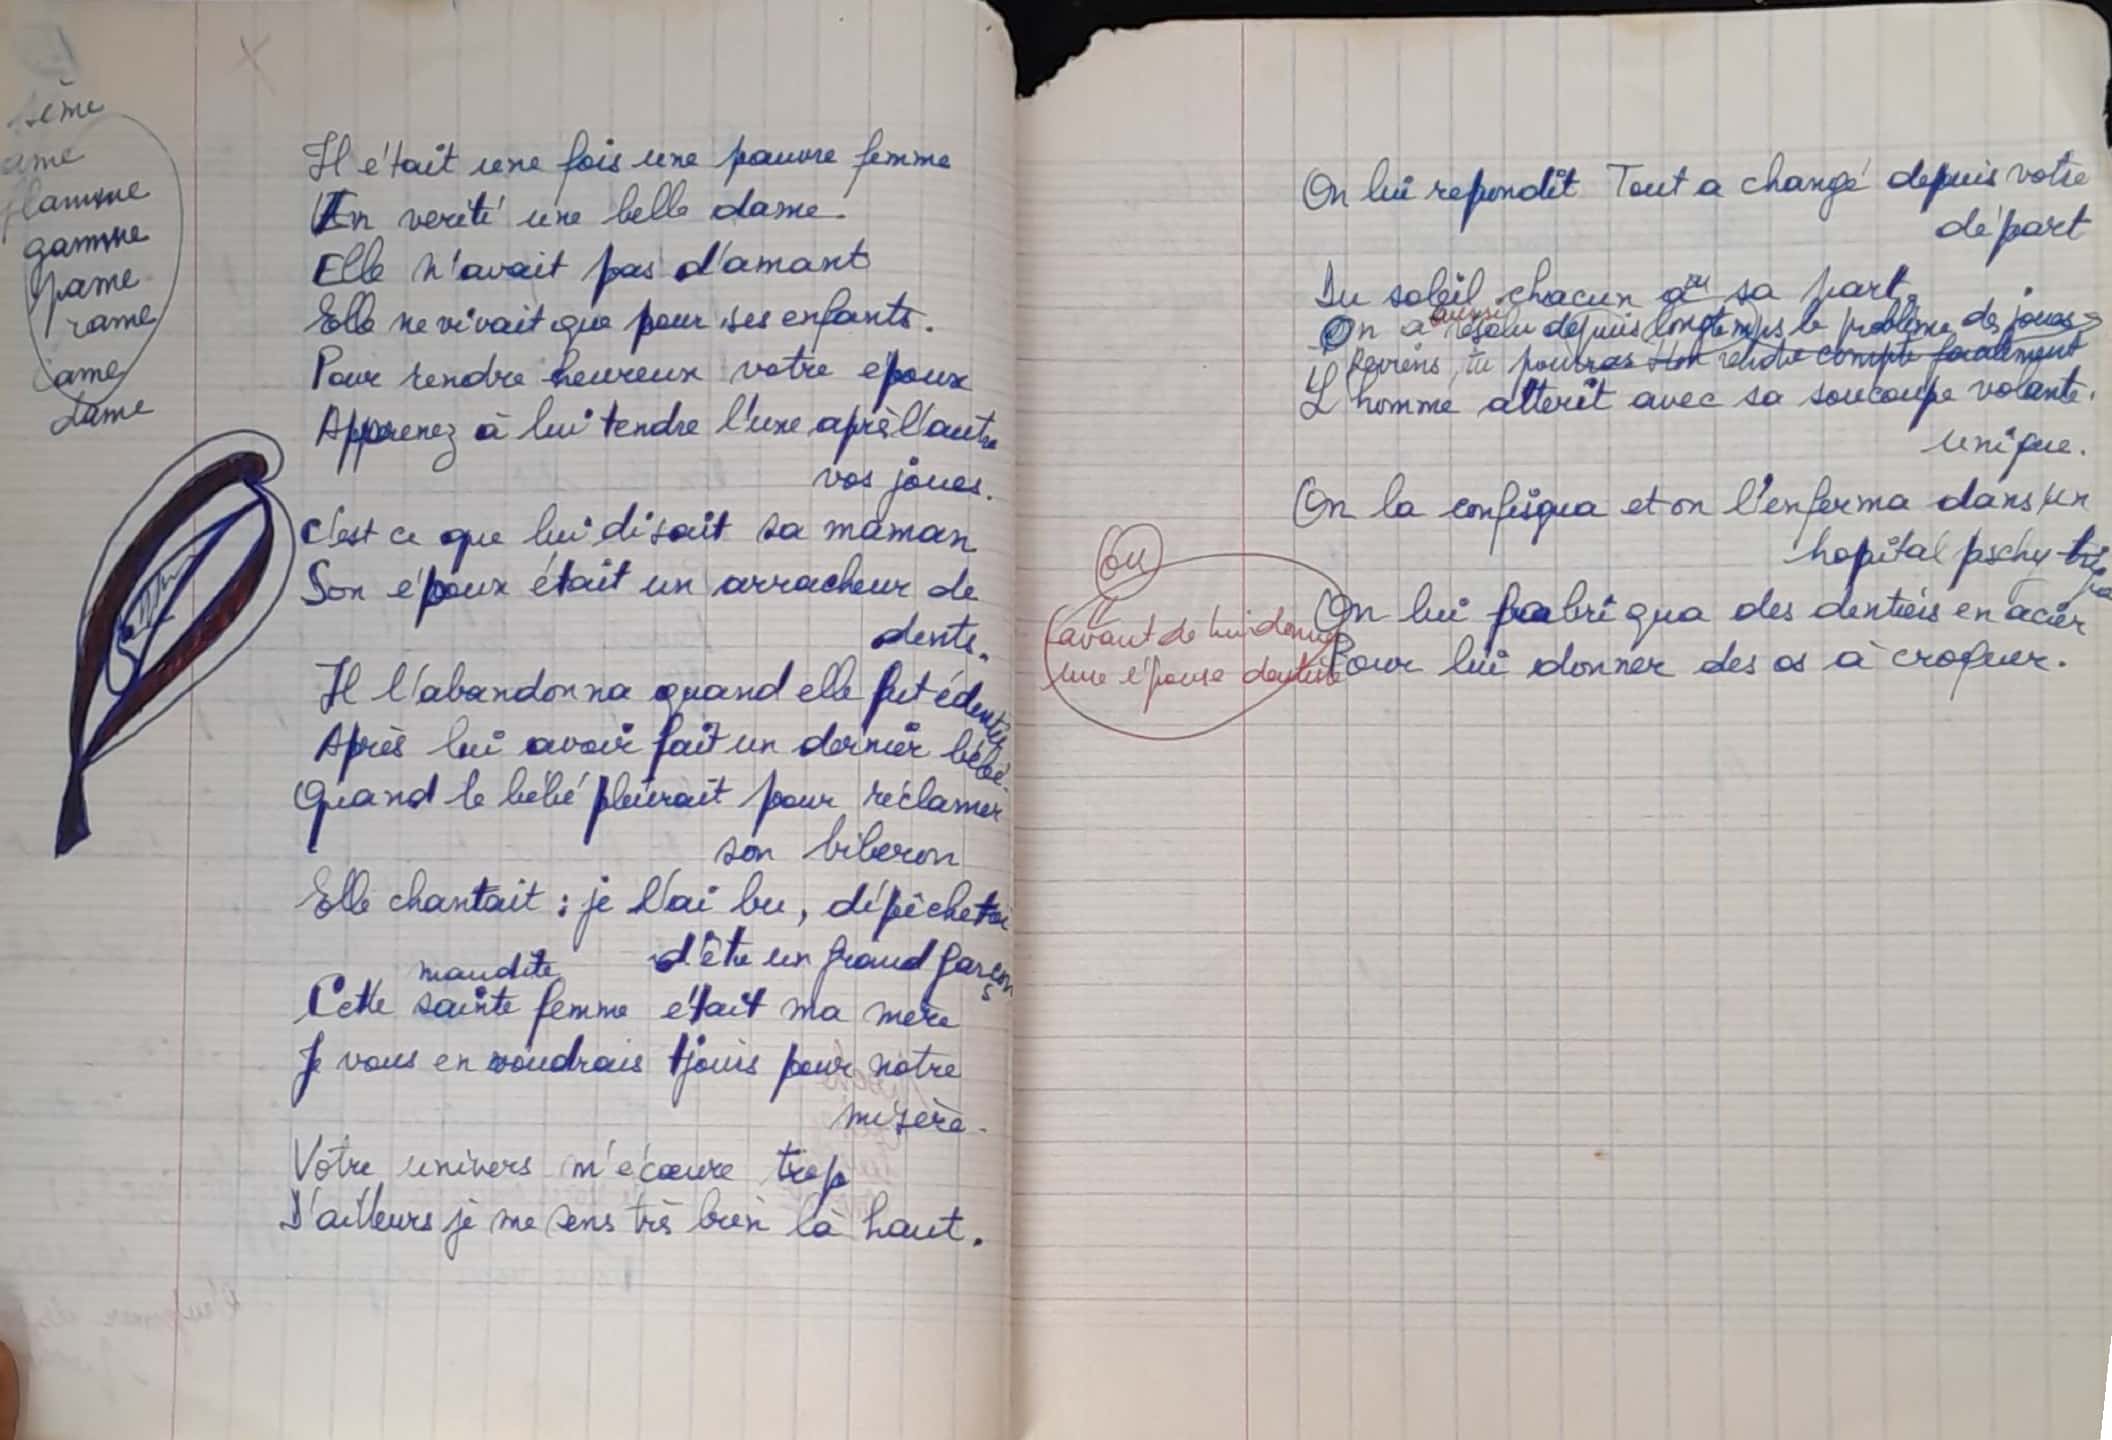 sème
ame
flamme
gamme
pame
rame
came
dame
Il était une fois une pauvre femme
En verité une belle dame.
Elle n'avait pas d'amant
Elle ne vivait que pour ses enfants.
Pour rendre heureux votre epoux
Apprenez à lui tendre l'une après l'autre
vos joues.
C'est ce que lui disait sa maman
Son époux était un arracheur de
dents.
Il l'abandonna quand elle fut édentée
Après lui avoir fait un dernier bébé.
Quand le bébé pleurait pour réclamer
son biberon
Elle chantait : je l'ai bu, dépêche toi
d'être un grand garçon
maudite
Cette sainte femme était ma mère
Je vous en voudrais tjours pour notre
misère.
Votre univers m'écœure trop
D'ailleurs je me sens très bien là haut.
On lui repondit Tout a changé depuis votre
départ
Du soleil chacun a eu sa part
On a aussi résolu depuis longtemps le problème des joues
Reviens, tu pourras t'en rendre compte facilement
L'homme atterit avec sa soucoupe volante
unique.
On la confisqua et on l'enferma dans un
hopital pschy-trique
On lui fabriqua des dentiers en acier
Pour lui donner des os à croquer.
ou
avant de lui donner
une épouse dentiste